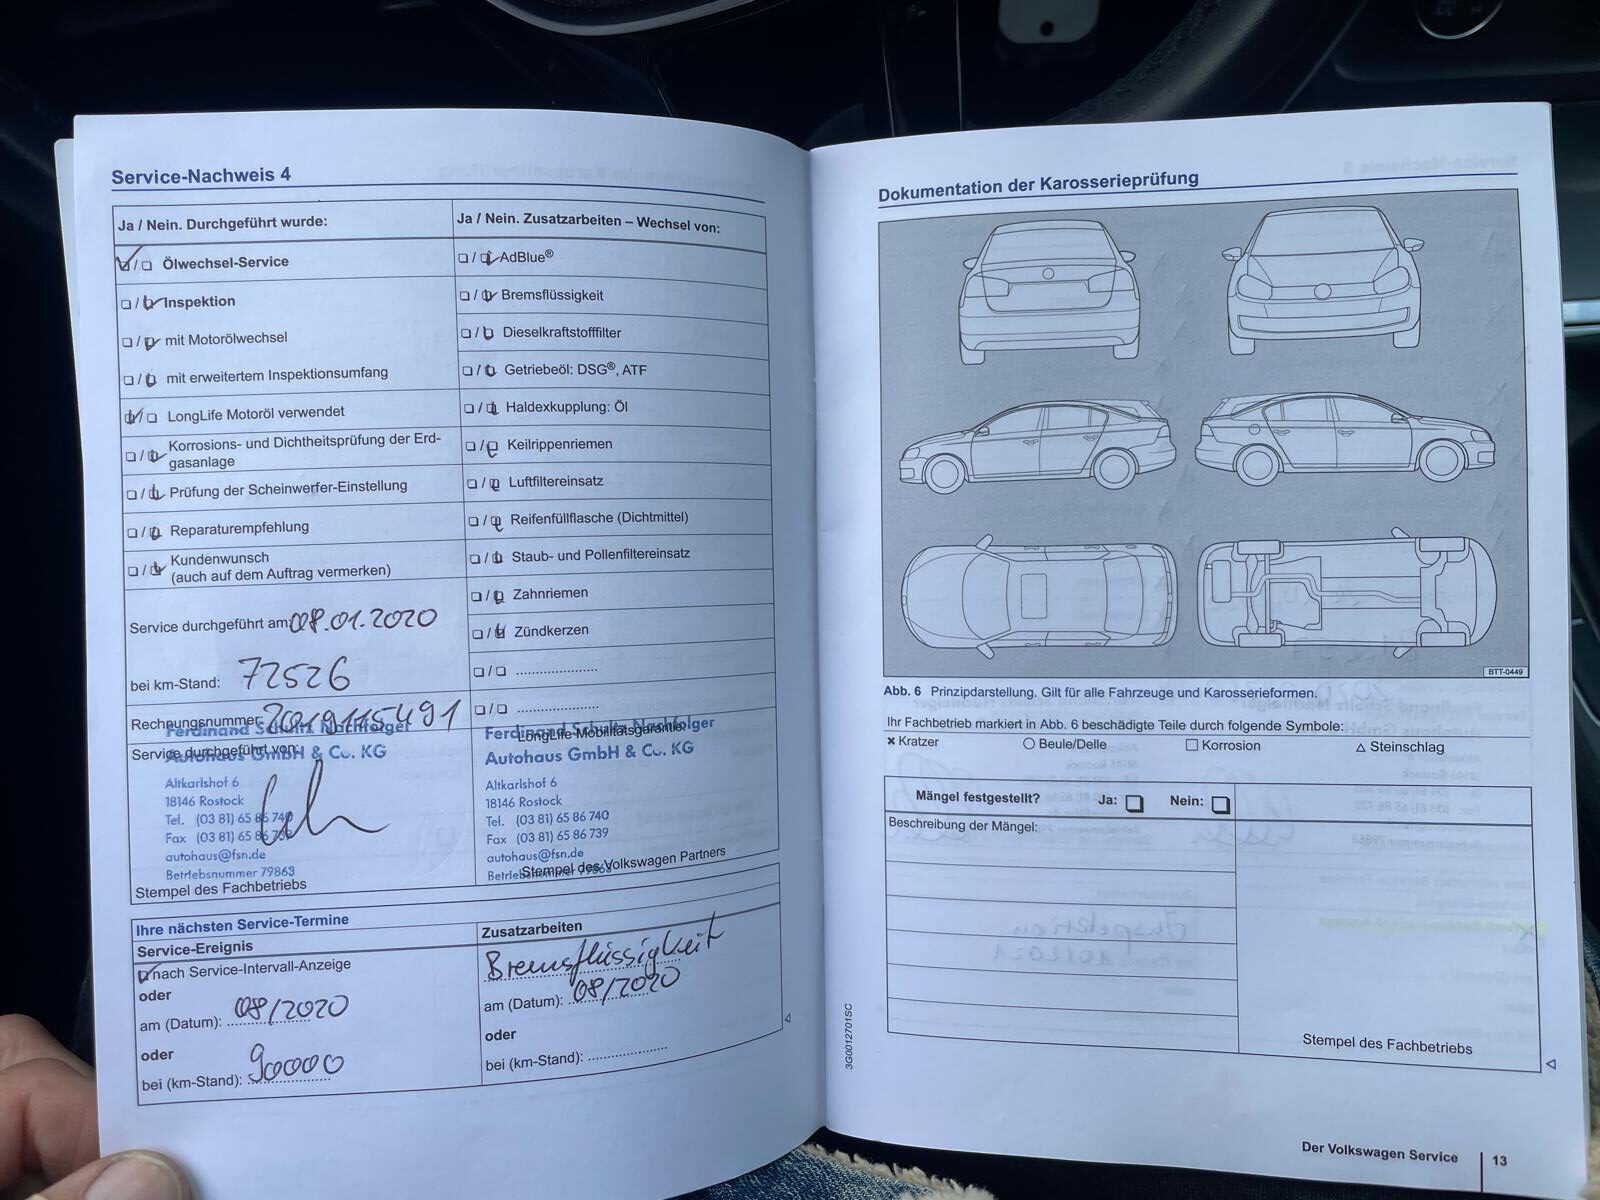 Service-Nachweis 4
Ja / Nein. Durchgeführt wurde:
☑ / ☐ Ölwechsel-Service
☐ / ☑ Inspektion
☐ / ☑ mit Motorölwechsel
☐ / ☑ mit erweitertem Inspektionsumfang
☑ / ☐ LongLife Motoröl verwendet
☐ / ☑ Korrosions- und Dichtheitsprüfung der Erd-
gasanlage
☐ / ☑ Prüfung der Scheinwerfer-Einstellung
☐ / ☑ Reparaturempfehlung
☐ / ☑ Kundenwunsch
(auch auf dem Auftrag vermerken)
Service durchgeführt am: 08.01.2020
bei km-Stand: 72526
Rechnungsnummer: 2019115491
Service durchgeführt von:
Ferdinand Schultz Nachfolger
Autohaus GmbH & Co. KG
Altkarlshof 6
18146 Rostock
Tel. (03 81) 65 86 740
Fax (03 81) 65 86 739
autohaus@fsn.de
Betriebsnummer 79863
Stempel des Fachbetriebs
Ja / Nein. Zusatzarbeiten – Wechsel von:
☐ / ☑ AdBlue®
☐ / ☑ Bremsflüssigkeit
☐ / ☑ Dieselkraftstofffilter
☐ / ☑ Getriebeöl: DSG®, ATF
☐ / ☑ Haldexkupplung: Öl
☐ / ☑ Keilrippenriemen
☐ / ☑ Luftfiltereinsatz
☐ / ☑ Reifenfüllflasche (Dichtmittel)
☐ / ☑ Staub- und Pollenfiltereinsatz
☐ / ☑ Zahnriemen
☐ / ☑ Zündkerzen
☐ / ☐ ....................
☐ / ☐ ....................
LongLife Mobilitätsgarantie:
Ferdinand Schultz Nachfolger
Autohaus GmbH & Co. KG
Altkarlshof 6
18146 Rostock
Tel. (03 81) 65 86 740
Fax (03 81) 65 86 739
autohaus@fsn.de
Betriebsnummer 79863
Stempel des Volkswagen Partners
Ihre nächsten Service-Termine
Service-Ereignis
☑ nach Service-Intervall-Anzeige
oder
am (Datum): 08/2020
oder
bei (km-Stand): 90000
Zusatzarbeiten
Bremsflüssigkeit
am (Datum): 08/2020
oder
bei (km-Stand): ....................
Dokumentation der Karosserieprüfung
BTT-0449
Abb. 6 Prinzipdarstellung. Gilt für alle Fahrzeuge und Karosserieformen.
Ihr Fachbetrieb markiert in Abb. 6 beschädigte Teile durch folgende Symbole:
× Kratzer ○ Beule/Delle □ Korrosion △ Steinschlag
Mängel festgestellt? Ja: ☐ Nein: ☐
Beschreibung der Mängel:
Stempel des Fachbetriebs
3G0012701SC
Der Volkswagen Service 13